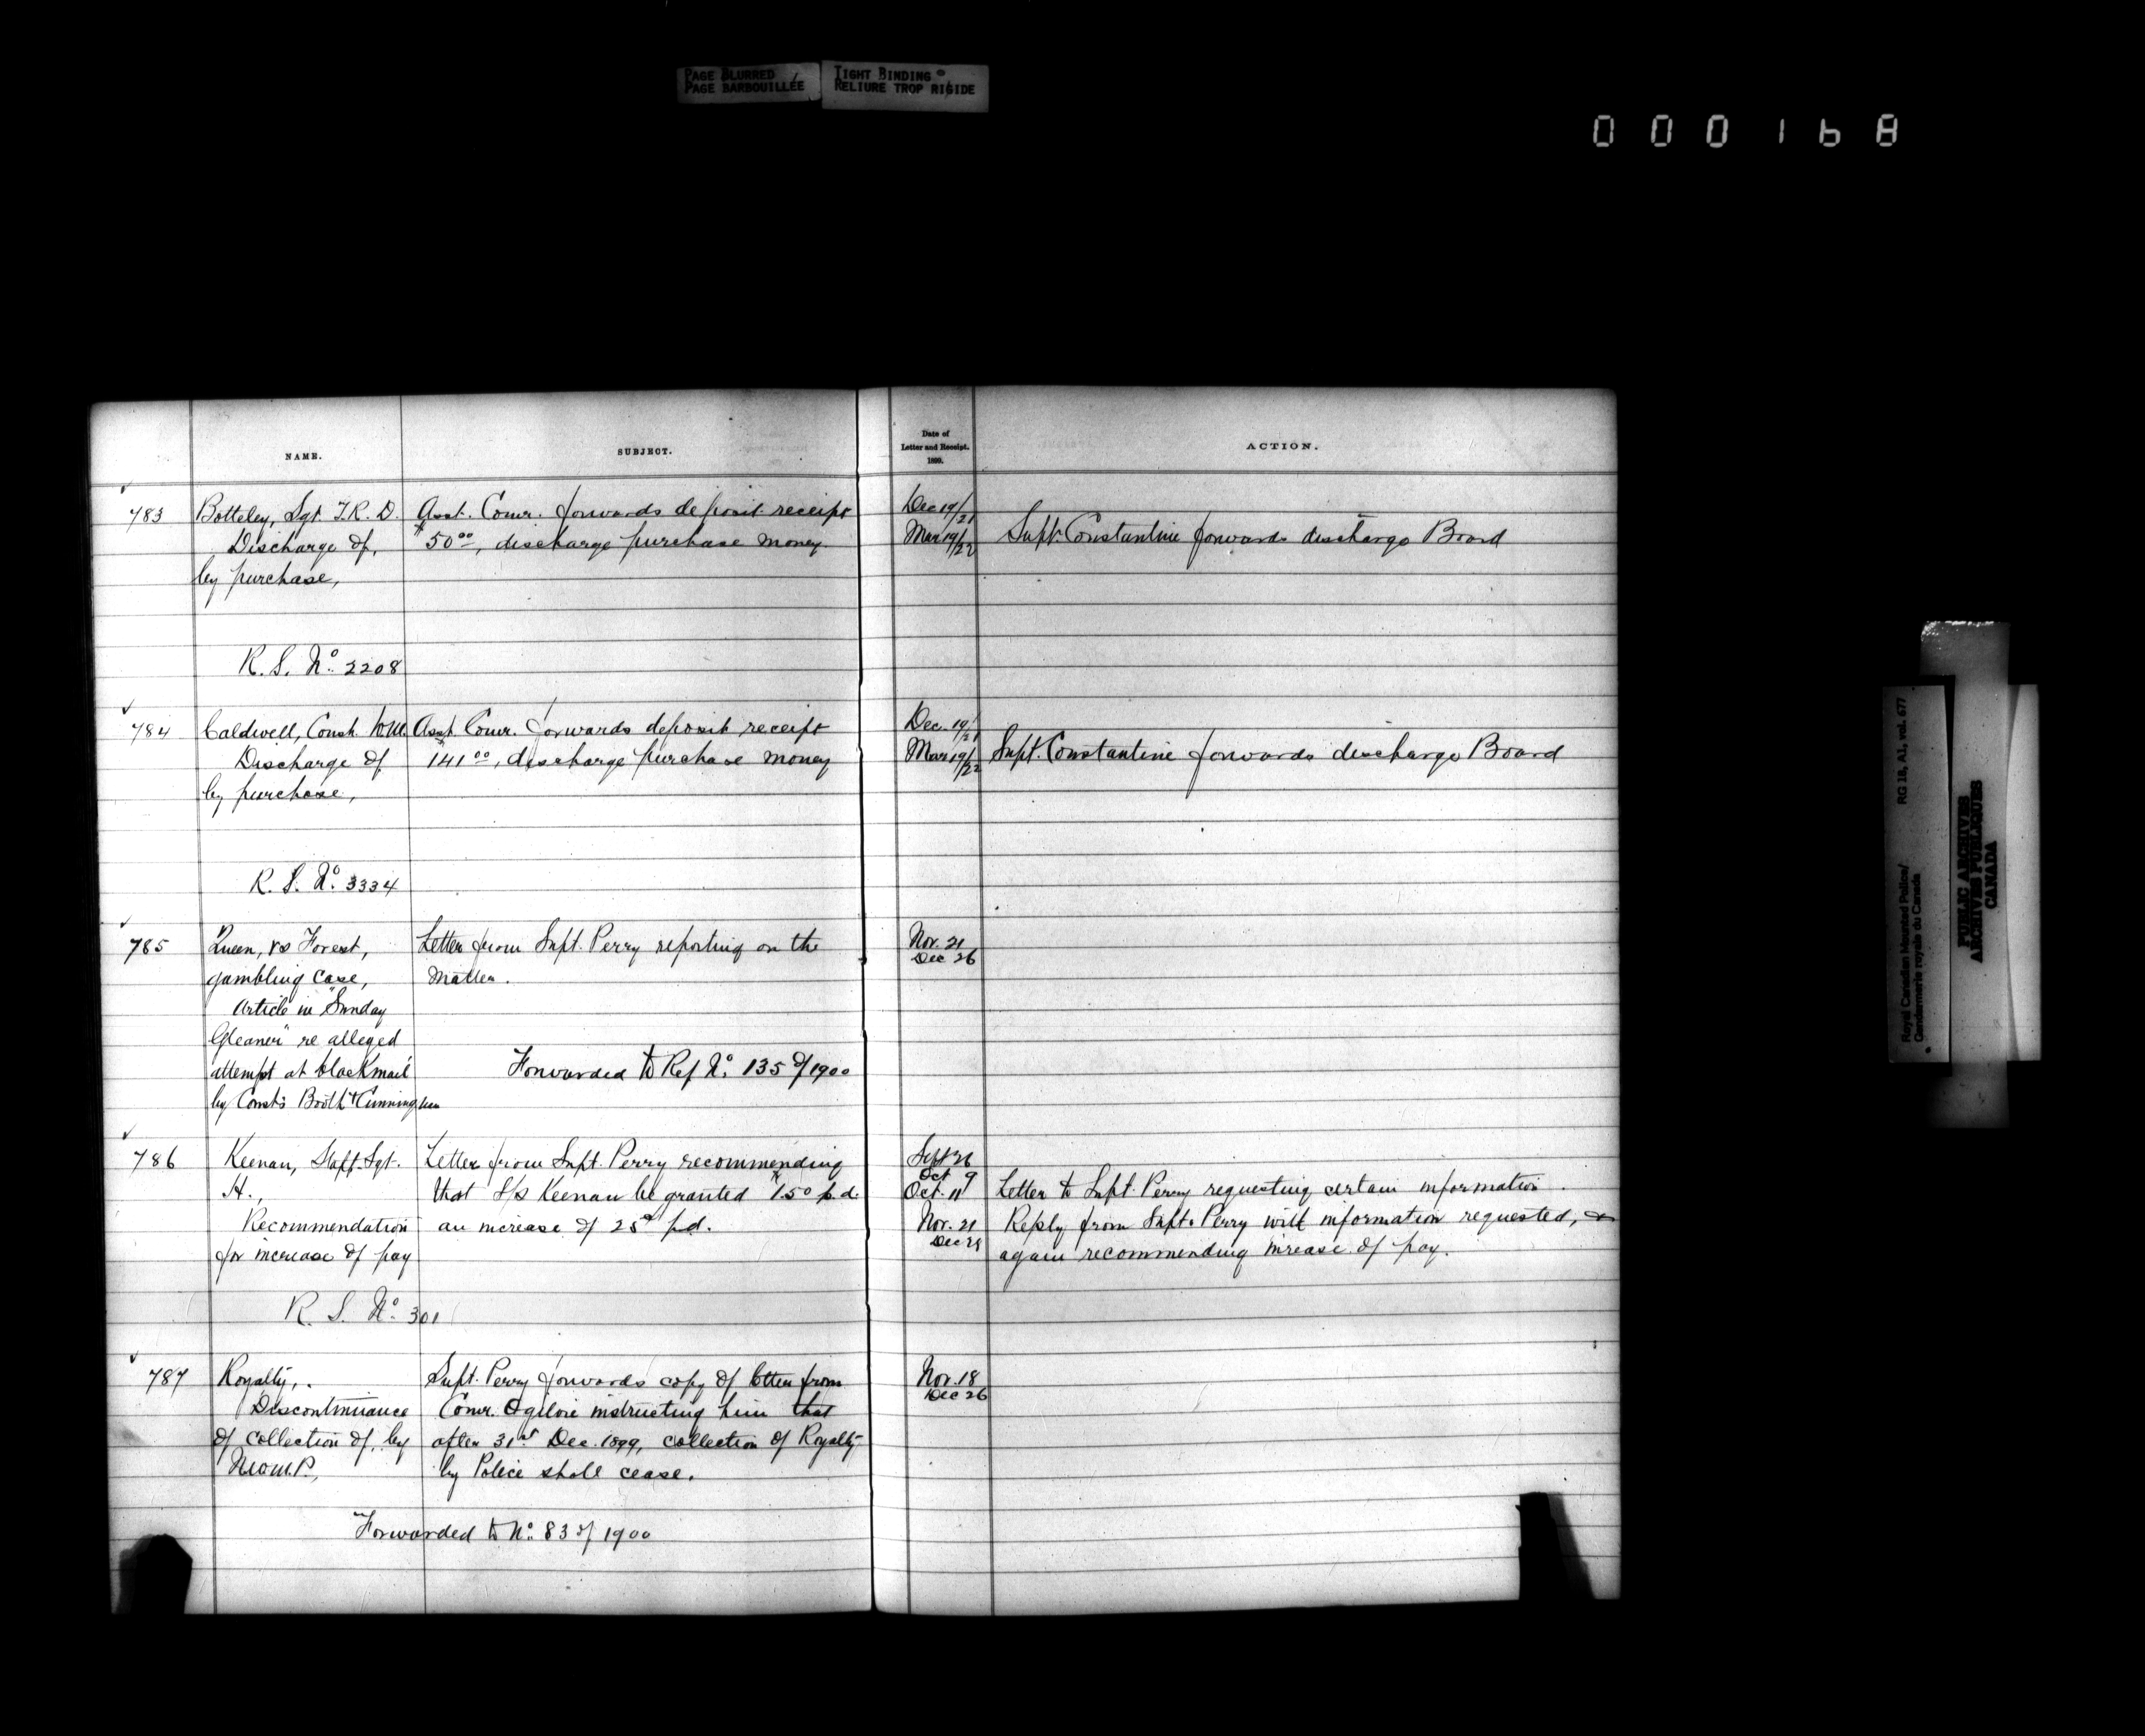 PAGE BLURRED
PAGE BARBOUILLÉE
TIGHT BINDING
RELIURE TROP RIGIDE
000168
NAME.
SUBJECT.
Date of
Letter and Receipt.
1899.
ACTION.
783
Botteley, Sgt. T.R.D.
Discharge of,
by purchase,
R. S. No. 2208
Asst. Comr. forwards deposit receipt
$50.00, discharge purchase money.
Dec 19/21
Mar 19/22
Supt. Constantine forwards discharge Board
784
Caldwell, Const.
Discharge of
by purchase,
R. S. No. 3334
Asst. Comr. forwards deposit receipt
141.00, discharge purchase money
Dec. 19/21
Mar 19/22
Supt. Constantine forwards discharge Board
785
Queen, vs Forest,
gambling case,
Article in "Sunday
Gleaner" re alleged
attempt at blackmail
by Consts Booth & Cunningham
Letter from Supt. Perry reporting on the
matter.
Forwarded to Ref No. 135 of 1900
Nov. 21
Dec 26
786
Keenan, Staff-Sgt.
H.,
Recommendation
for increase of pay
R. S. No. 301
Letter from Supt. Perry recommending
that S/S Keenan be granted 1.50 p.d.
an increase of 25¢ p.d.
Sept 26
Oct 9
Oct. 11
Letter to Supt. Perry requesting certain information.
Nov. 21
Dec 29
Reply from Supt. Perry with information requested, &
again recommending increase of pay.
787
Royalty,
Discontinuance
of collection of, by
N.W.M.P.,
Supt. Perry forwards copy of letter from
Comr. Ogilvie instructing him that
after 31st Dec. 1899, collection of Royalty
by Police shall cease.
Forwarded to No. 83 of 1900
Nov. 18
Dec 26
Royal Canadian Mounted Police/ RG 18, A1, vol. 677
Gendarmerie royale du Canada
PUBLIC ARCHIVES
ARCHIVES PUBLIQUES
CANADA